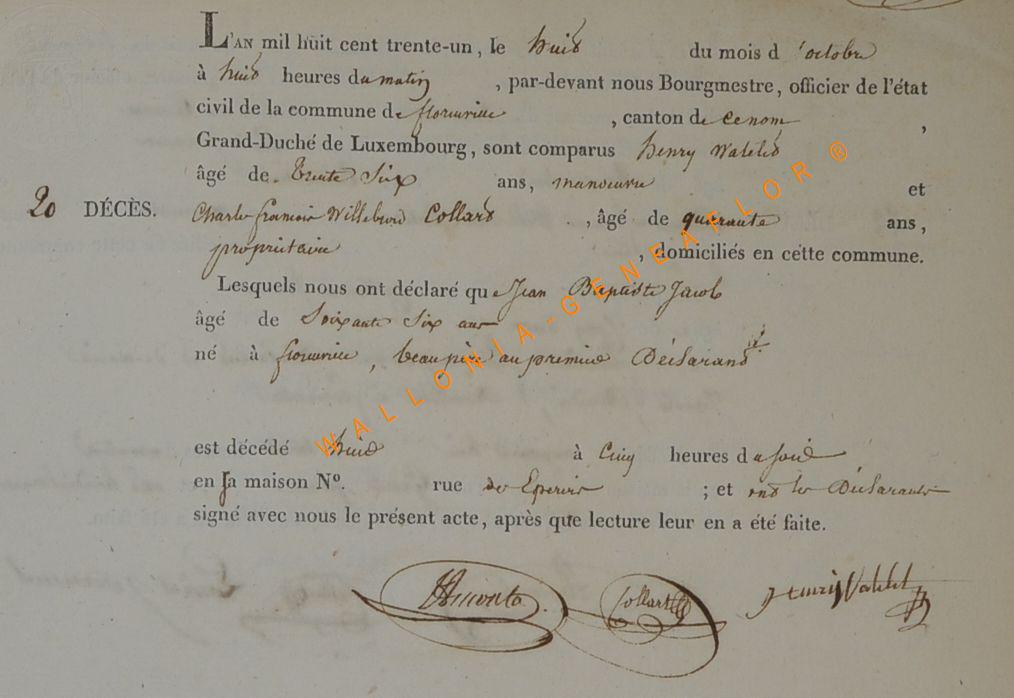 L'AN mil huit cent trente-un, le huit du mois d'octobre
à huit heures du matin, par-devant nous Bourgmestre, officier de l'état
civil de la commune de florenville, canton de
Grand-Duché de Luxembourg, sont comparus henry Watelet
âgé de trente Six ans, manoeuvre et
20 DÉCÈS. Charle françois Willebrord Collard, âgé de quarante ans,
propriétaire, domiciliés en cette commune.
Lesquels nous ont déclaré que Jean Baptiste Jacob
âgé de Soixante Six ans
né à florenville, beau père au premier Déclarant
est décédé hier à Cinq heures du soir
en sa maison Nº. rue des Eperires; et ont les Déclarants
signé avec nous le présent acte, après que lecture leur en a été faite.
Collard Henri Watelet
WALLONIA-GENEAFLOR ®